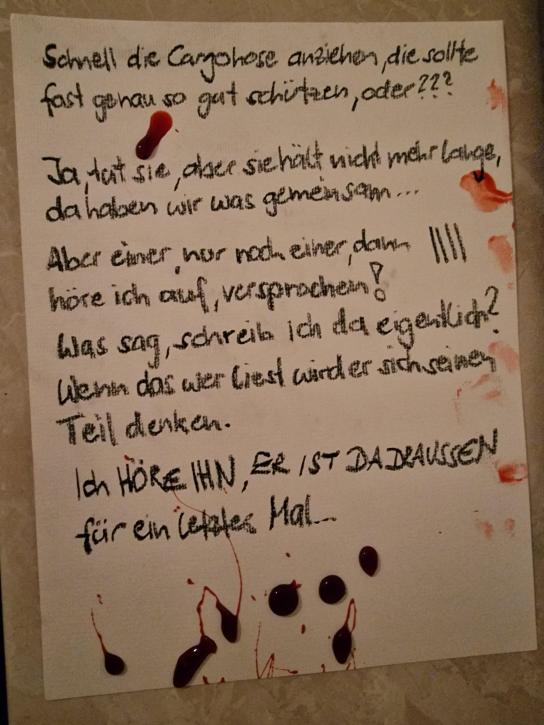 Schnell die Cargohose anziehen, die sollte
fast genau so gut schützen, oder???
Ja, tut sie, aber sie hält nicht mehr lange,
da haben wir was gemeinsam...
Aber einer, nur noch einer, dann ||||
höre ich auf, versprochen!
Was sag, schreib ich da eigentlich?
Wenn das wer liest wird er sich seinen
Teil denken.
Ich HÖRE IHN, ER IST DADRAUSSEN
für ein letztes Mal...